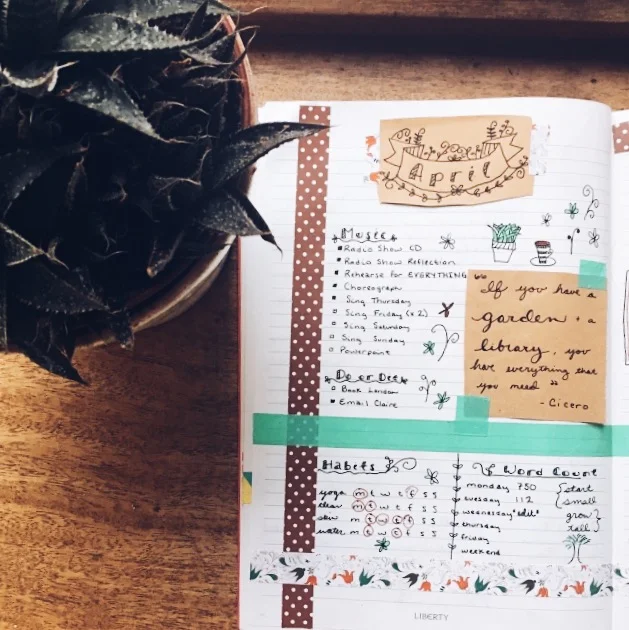 April
Music
Radio Show CD
Radio Show Reflection
Rehearse for EVERYTHING
Choreograph
Sing Thursday
Sing Friday (x2)
Sing Saturday
Sing Sunday
Powerpoint
Do or Die
Book London
Email Claire
"If you have a
garden + a
library, you
have everything that
you need"
- Cicero
Habits
yoga m t w t f s s
clean m t w t f s s
m t w t f s s
water m t w t f s s
Word Count
monday 750
tuesday 112
wednesday "edit"
thursday
friday
weekend
{start
small
grow
tall}
LIBERTY